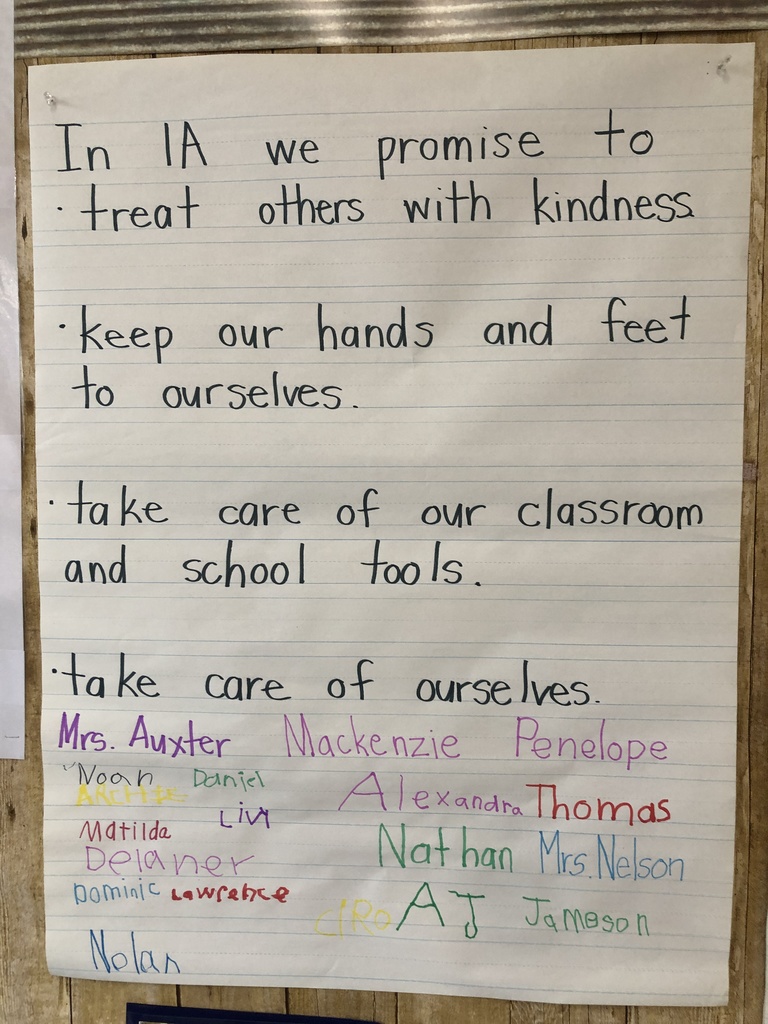 In 1A we promise to
· treat others with kindness
· keep our hands and feet
to ourselves.
· take care of our classroom
and school tools.
· take care of ourselves.
Mrs. Auxter Mackenzie Penelope
Noah Daniel
Alexandra Thomas
Livi
Matilda
Nathan Mrs. Nelson
Delaney
Dominic Lawrence
CIRO AJ Jameson
Nolan